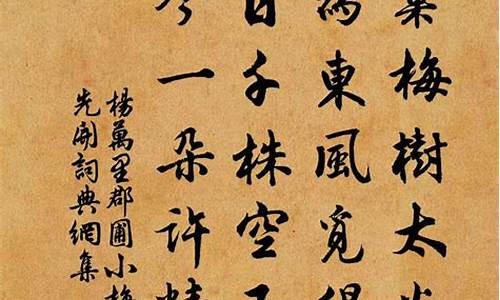 梅樹太
為東風覓得
日千株空
今一朵許
楊萬里郡圃小梅
先開詞典網集